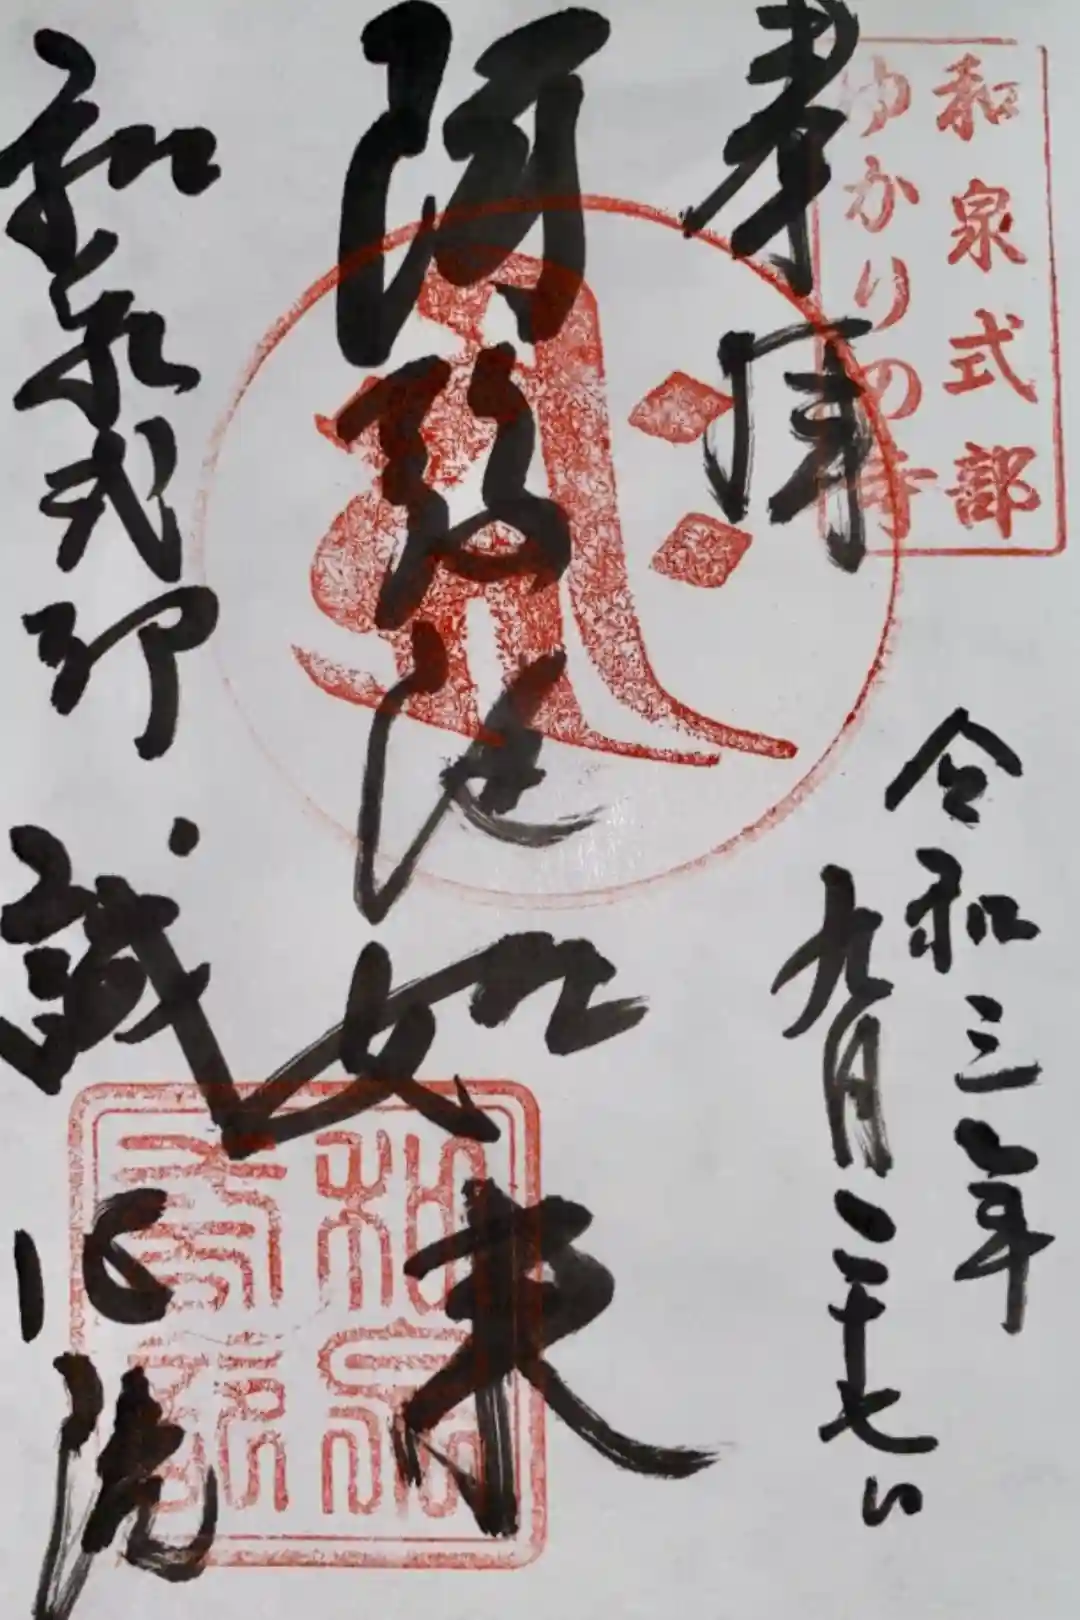 和泉式部
ゆかりの寺
奉拝
令和三年
九月二十七日
阿弥陀如来
和泉式部 誠心院